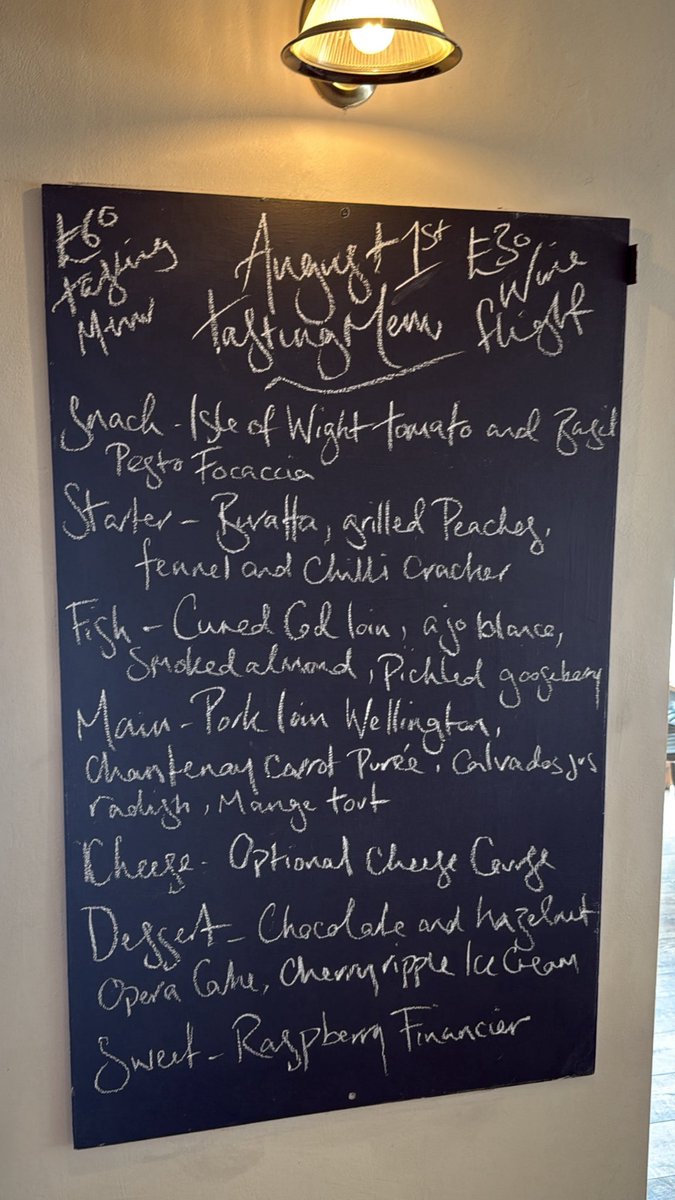 £60
Tasting
Menu
August 1st
Tasting Menu
£30
Wine
flight
Snack - Isle of Wight tomato and Basil
Pesto Focaccia
Starter - Buratta, grilled Peaches,
fennel and Chilli Cracker
Fish - Cured Cod loin, ajo blance,
Smoked almond, Pickled gooseberry
Main - Pork loin Wellington,
Chantenay Carrot Purée, Calvados jus
radish, Mange tout
Cheese - Optional Cheese Course
Dessert - Chocolate and hazelnut
Opera Cake, Cherry ripple Ice Cream
Sweet - Raspberry Financier